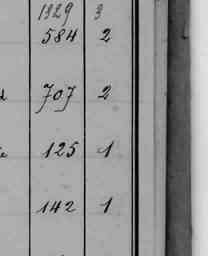 1329 3
584 2
707 2
125 1
142 1